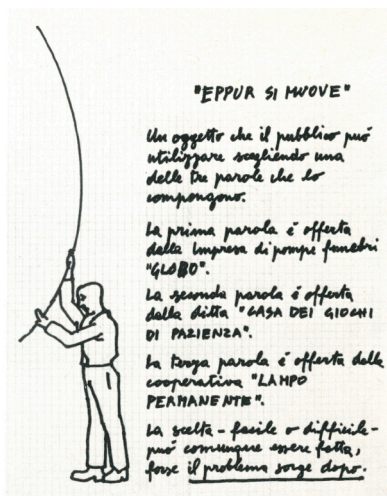 "EPPUR SI MUOVE"
Un oggetto che il pubblico può
utilizzare scegliendo una
delle tre parole che lo
compongono.
La prima parola è offerta
dalla Impresa di pompe funebri
"GLOBO".
La seconda parola è offerta
dalla ditta "CASA DEI GIOCHI
DI PAZIENZA".
La terza parola è offerta dalla
cooperativa "LAMPO
PERMANENTE".
La scelta - facile o difficile -
può comunque essere fatta,
forse il problema sorge dopo.